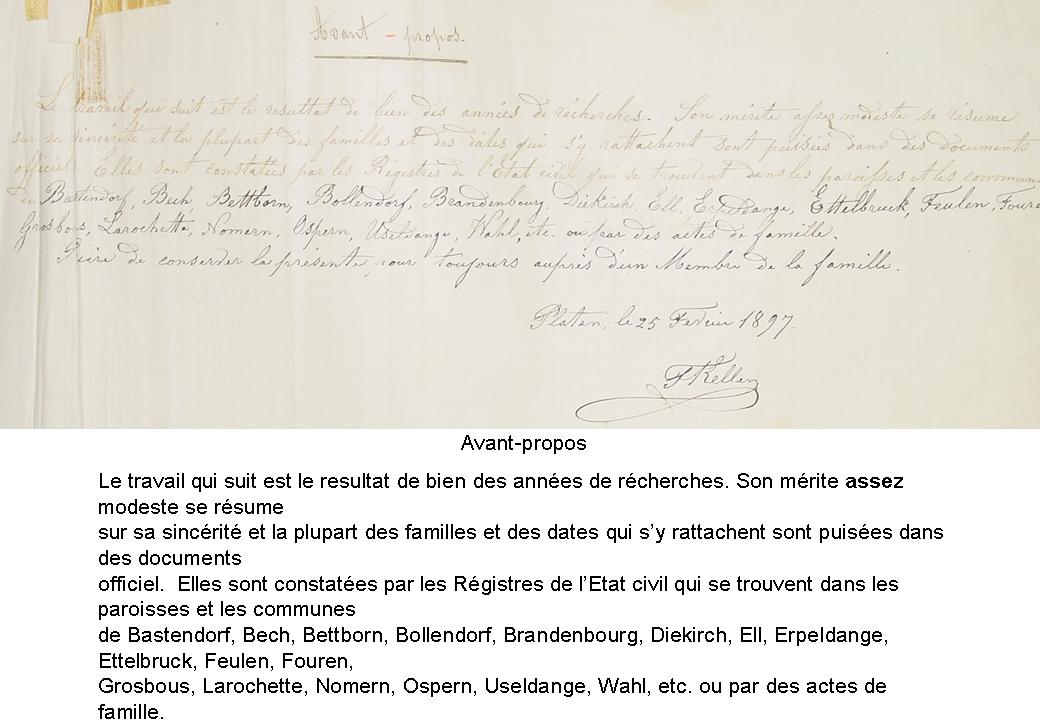 Avant - propos.
Le travail qui suit est le resultat de bien des années de récherches. Son mérite assez modeste se résume
sur sa sincérité et la plupart des familles et des dates qui s'y rattachent sont puisées dans des documents
officiel. Elles sont constatées par les Régistres de l'Etat civil qui se trouvent dans les paroisses et les commun
de Bastendorf, Bech Bettborn, Bollendorf, Brandenbourg, Diekirch, Ell, Erpeldange, Ettelbruck, Feulen, Foure
Grosbous, Larochette, Nomern, Ospern, Useldange, Wahl, etc. ou par des actes de famille.
Prière de conserver la présente pour toujours auprès d'un Membre de la famille.
Platen, le 25 Fevrier 1897.
F Kellen
Avant-propos
Le travail qui suit est le resultat de bien des années de récherches. Son mérite assez
modeste se résume
sur sa sincérité et la plupart des familles et des dates qui s'y rattachent sont puisées dans
des documents
officiel. Elles sont constatées par les Régistres de l'Etat civil qui se trouvent dans les
paroisses et les communes
de Bastendorf, Bech, Bettborn, Bollendorf, Brandenbourg, Diekirch, Ell, Erpeldange,
Ettelbruck, Feulen, Fouren,
Grosbous, Larochette, Nomern, Ospern, Useldange, Wahl, etc. ou par des actes de
famille.